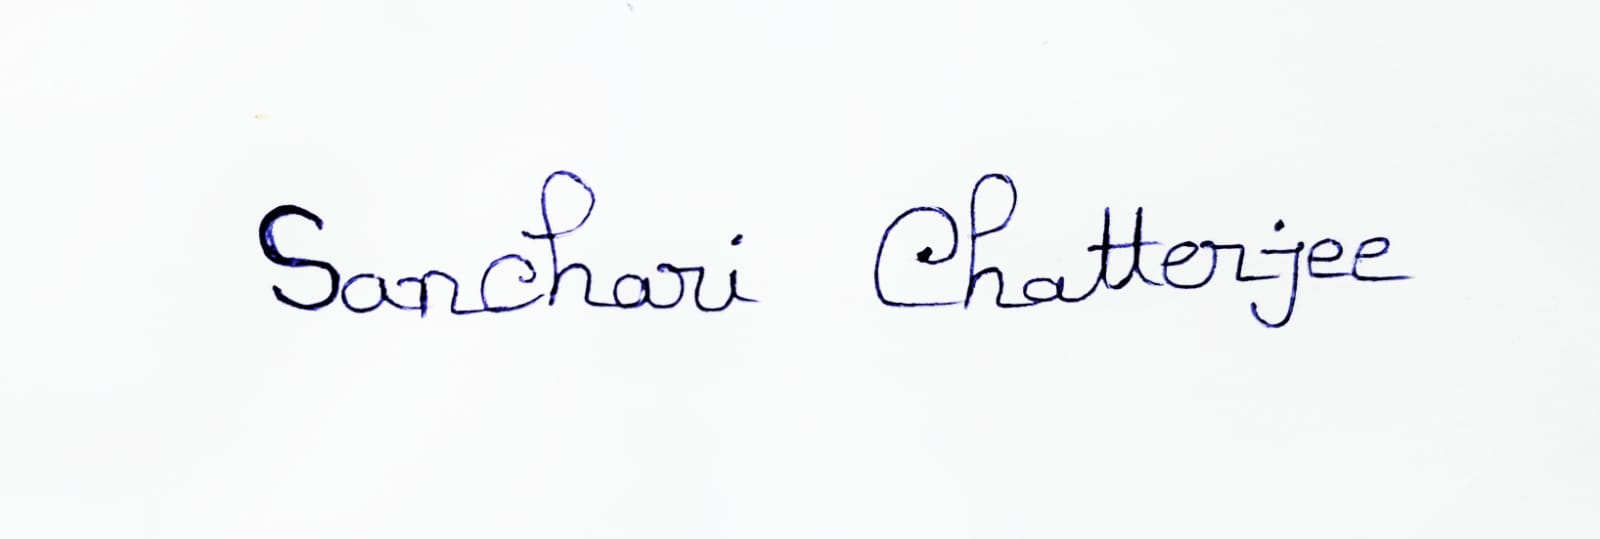 Sanchari Chatterjee